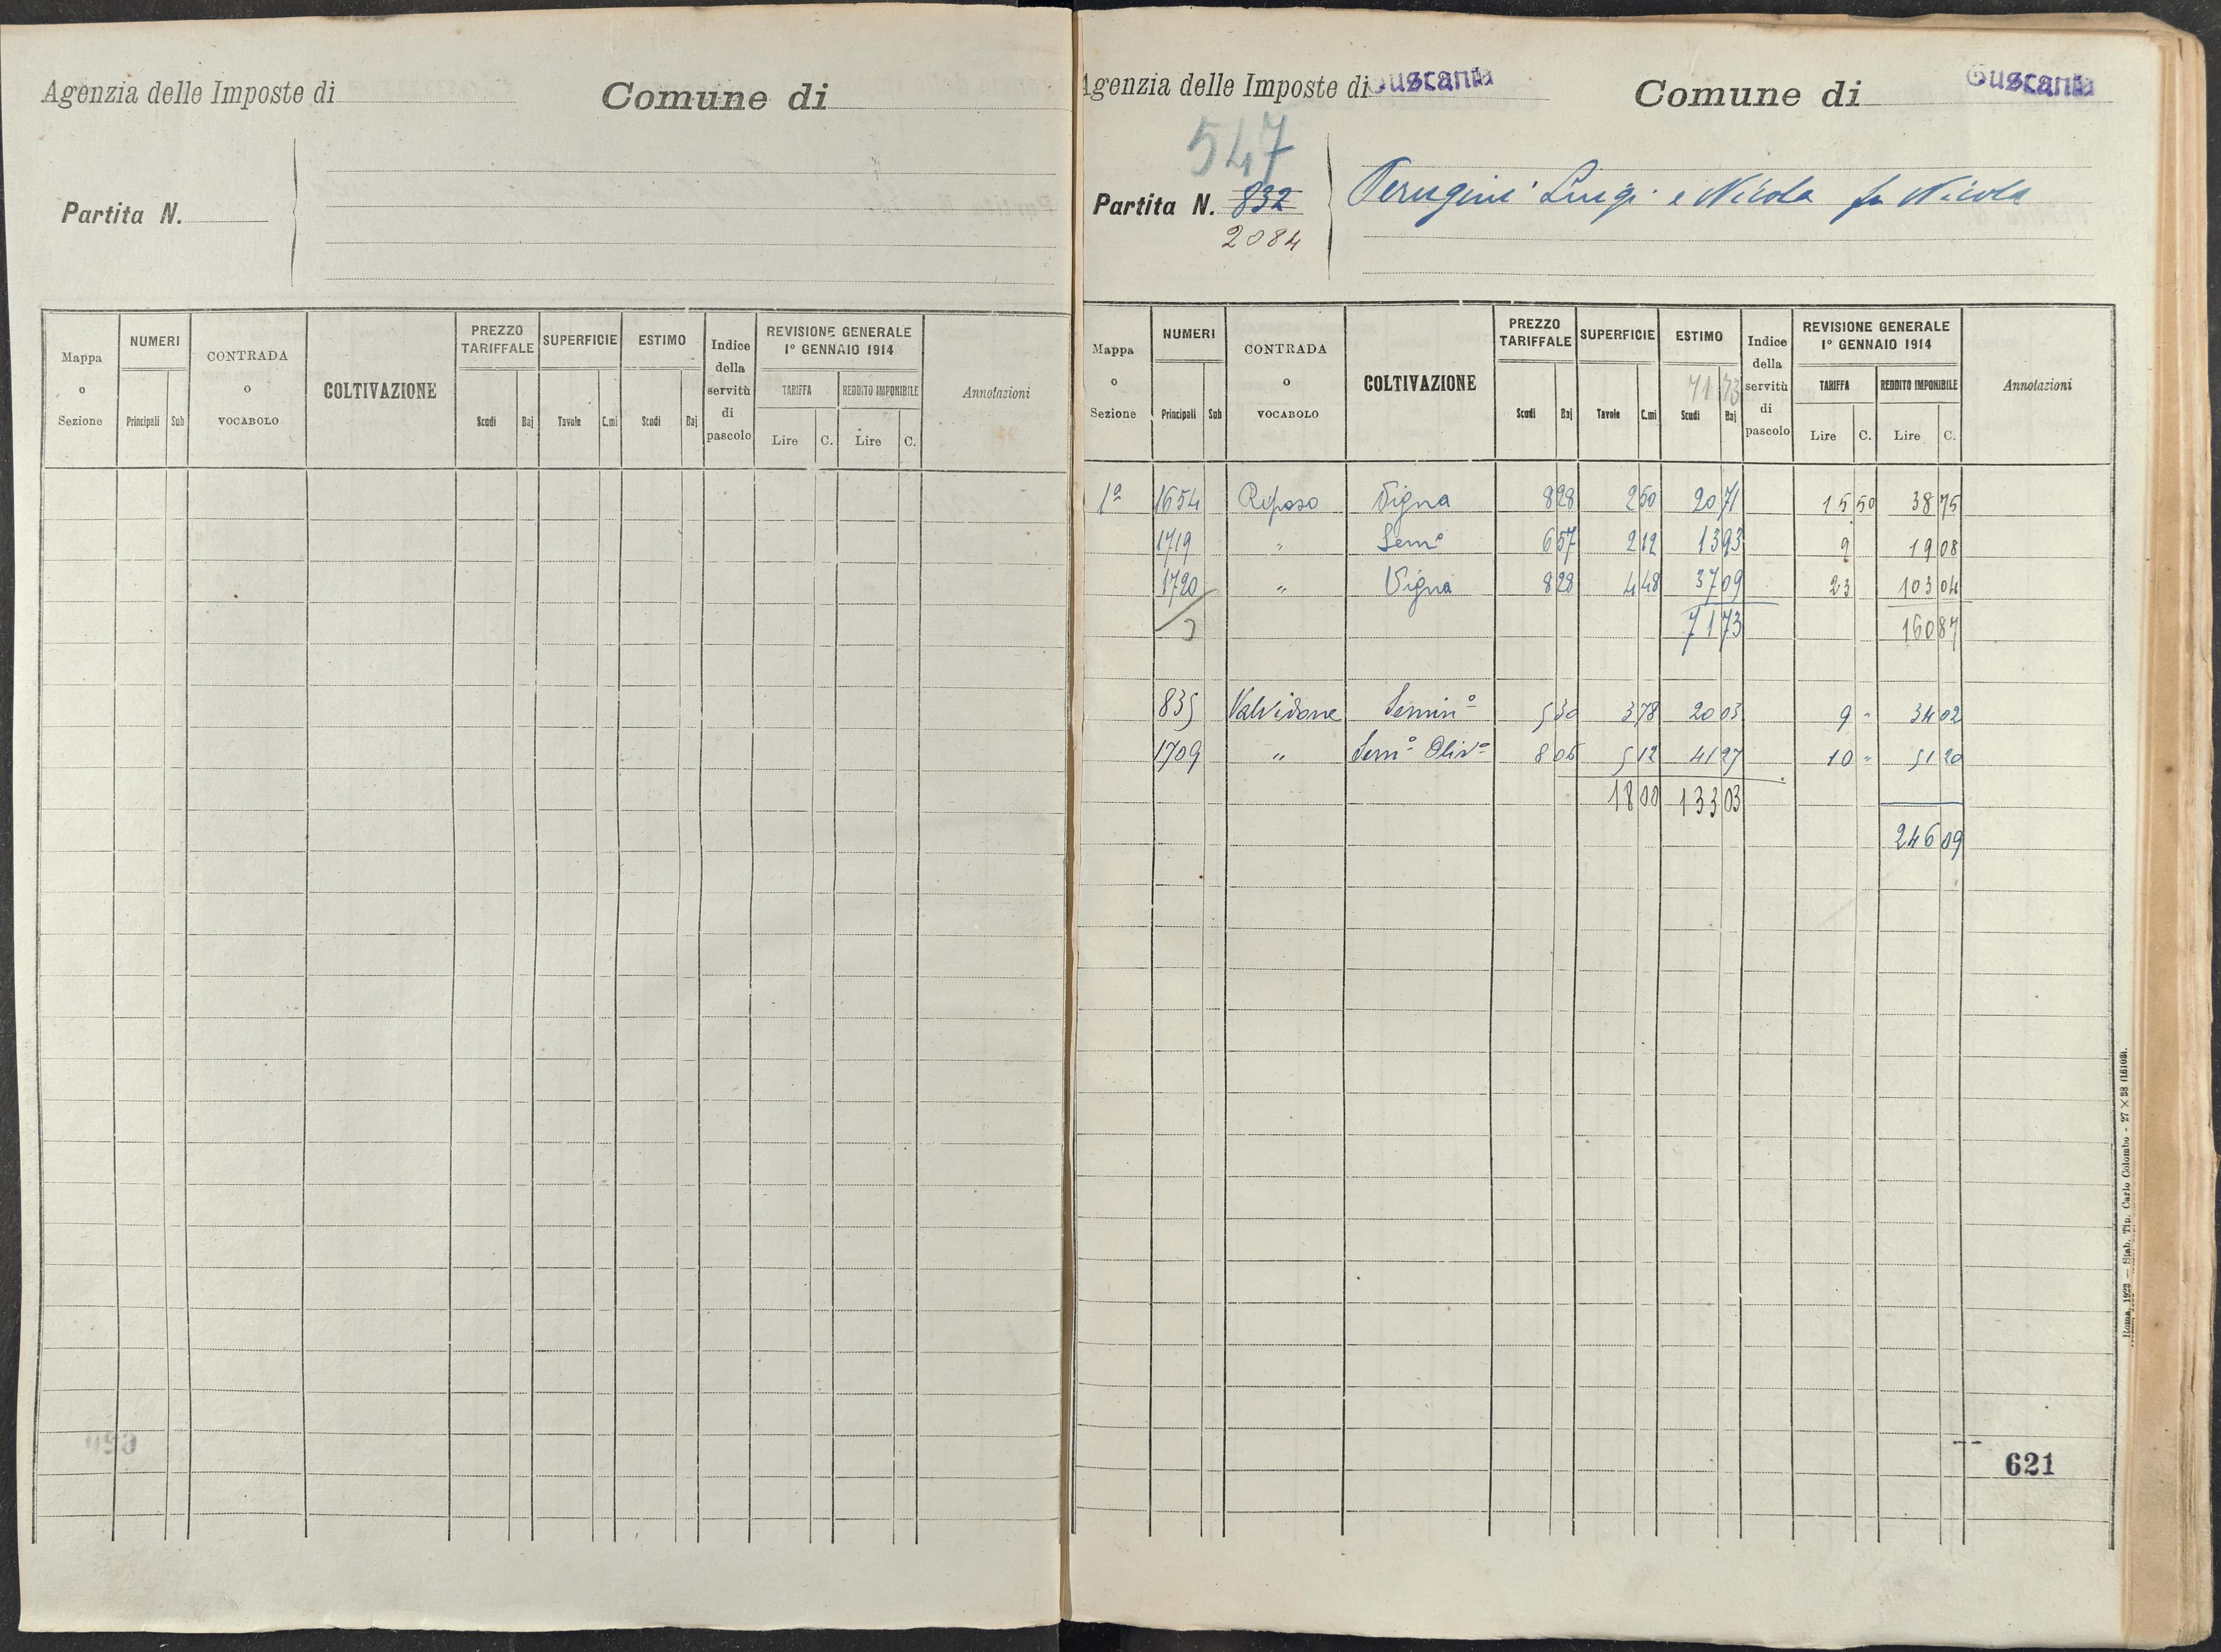 Agenzia delle Imposte di
Comune di
Partita N.
Mappa o Sezione
NUMERI
Principali Sub
CONTRADA o VOCABOLO
COLTIVAZIONE
PREZZO TARIFFALE
Scudi Baj
SUPERFICIE
Tavole C.mi
ESTIMO
Scudi Baj
Indice della servitù di pascolo
REVISIONE GENERALE
1º GENNAIO 1914
TARIFFA
Lire C.
REDDITO IMPONIBILE
Lire C.
Annotazioni
Agenzia delle Imposte di Tuscania
Comune di Tuscania
547
Partita N. 832
2084
Perugini Luigi e Nicola fu Nicola
Mappa o Sezione
NUMERI
Principali Sub
CONTRADA o VOCABOLO
COLTIVAZIONE
PREZZO TARIFFALE
Scudi Baj
SUPERFICIE
Tavole C.mi
ESTIMO
71 73
Scudi Baj
Indice della servitù di pascolo
REVISIONE GENERALE
1º GENNAIO 1914
TARIFFA
Lire C.
REDDITO IMPONIBILE
Lire C.
Annotazioni
1ª 1654 Riposo Vigna 8 28 2 50 20 71 15 50 38 75
1719 " Semº 6 57 2 12 13 93 9 19 08
1720 " Vigna 8 28 4 48 37 09 23 103 04
3 71 73 160 87
835 Valvidone Seminº 5 30 3 78 20 03 9 " 34 02
1709 " Semº Olivº 8 06 5 12 41 27 10 " 51 20
18 00 133 03
246 09
621
Roma, 1923 — Stab. Tip. Carlo Colombo - 27 × 38 (16103).